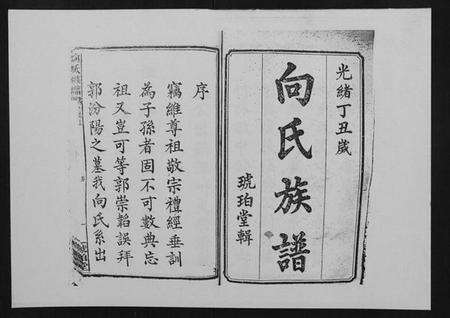 光緒丁丑歲
向氏族譜
琥珀堂輯
序
竊維尊祖敬宗禮經垂訓
為子孫者固不可數典忘
祖又豈可等郭崇韜誤拜
郭汾陽之墓我向氏系出